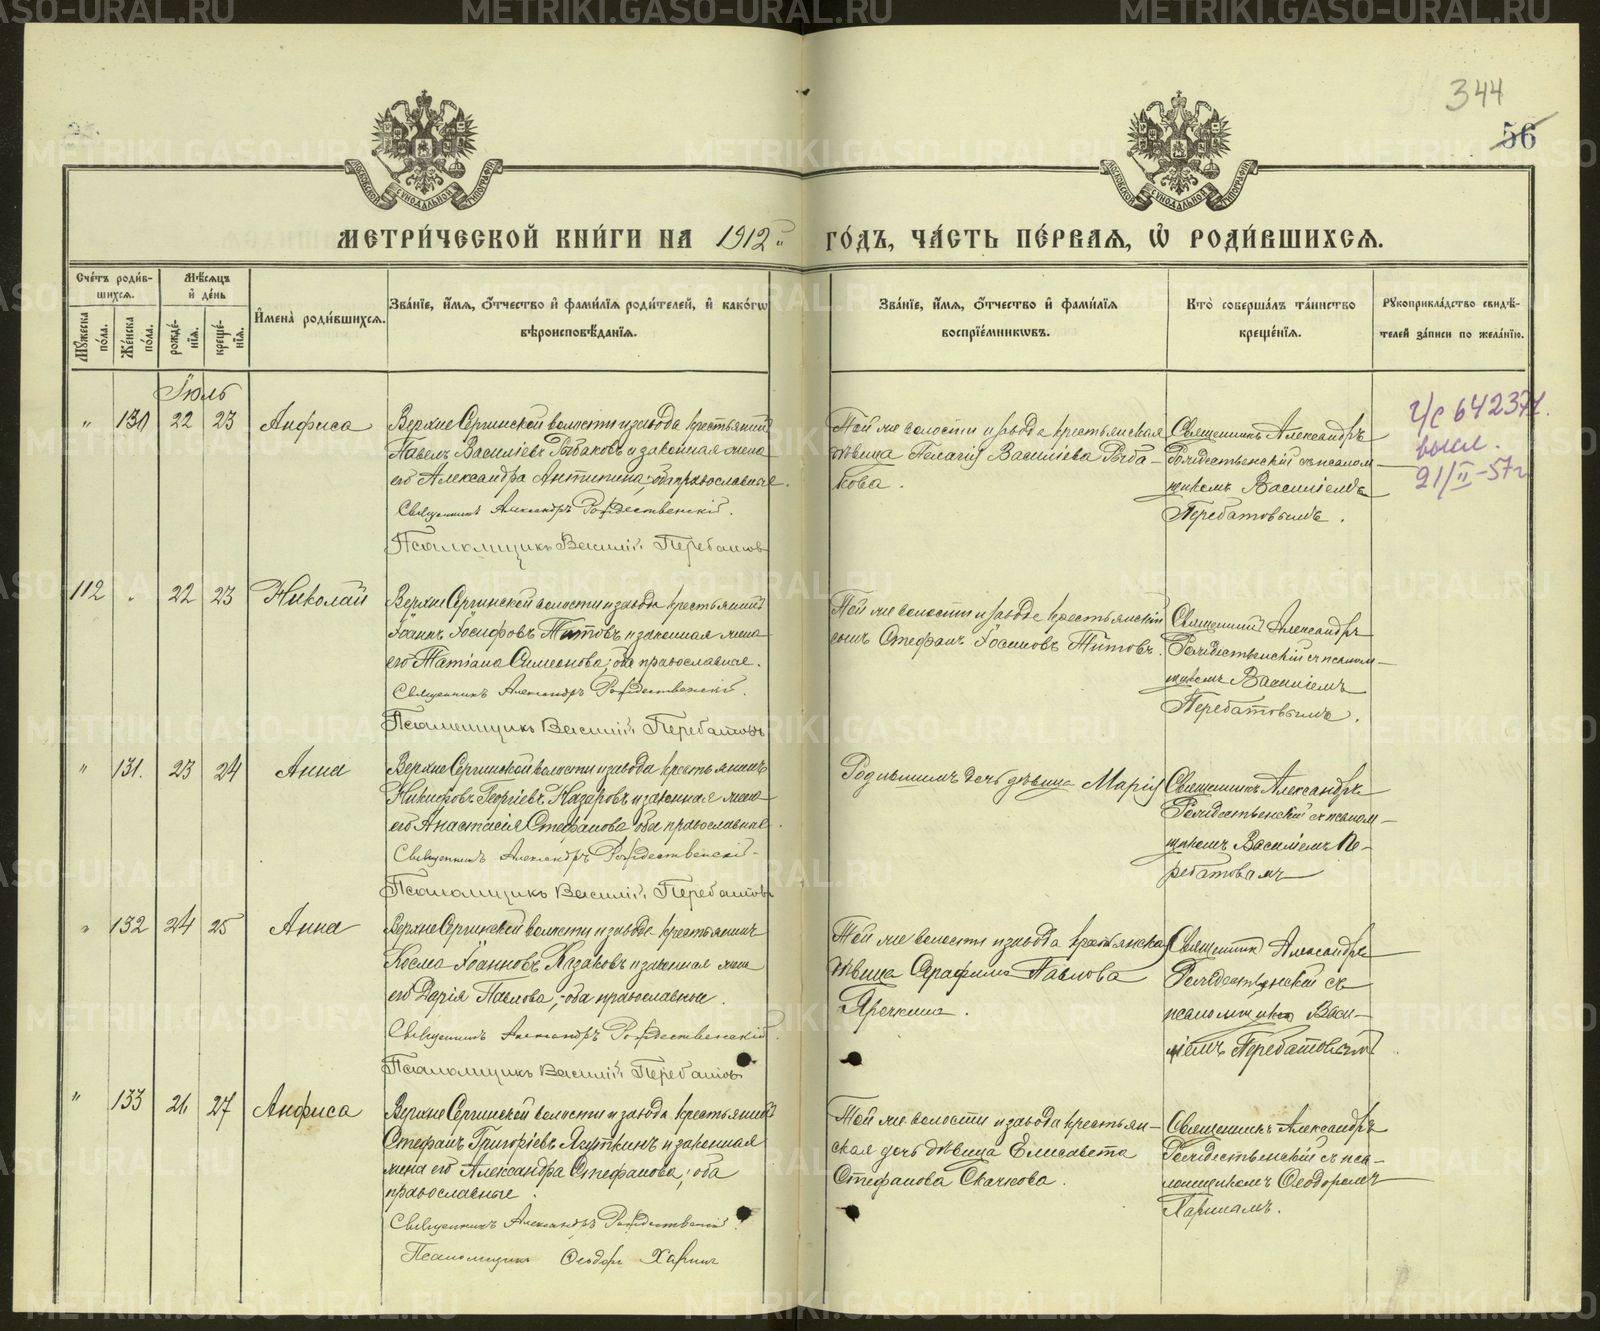 344
56
МОСКОВСКОЙ СѴНОДАЛЬНОЙ ТИПОГРАФІИ
МОСКОВСКОЙ СѴНОДАЛЬНОЙ ТИПОГРАФІИ
МЕТРИ́ЧЕСКОЙ КНИ́ГИ НА 1912 ГО́ДЪ, ЧА́СТЬ ПЕ́РВАѦ, Ѡ҆ РОДИ́ВШИХСѦ.
Сче́тъ роди́в-
шихсѧ.
Мꙋ́жеска по́ла.
Же́нска по́ла.
Мѣ́сѧцъ
и҆ де́нь
рожде́-
нїѧ.
креще́-
нїѧ.
И҆мена̀ роди́вшихсѧ.
Зва́нїе, и҆́мѧ, ѻ҆́тчество и҆ фами́лїѧ роди́телей, и҆ како́гѡ
вѣроисповѣ́данїѧ.
Зва́нїе, и҆́мѧ, ѻ҆́тчество и҆ фами́лїѧ
воспрїе́мникѡвъ.
Кто̀ соверша́лъ та́инство
креще́нїѧ.
Рꙋкоприкла́дство свидѣ́-
телей за́писи по жела́нїю.
Іюль
" 130 22 23 Анфиса
Верхне Сергинской волости и завода крестьянинъ
Павелъ Василіевъ Рыбаковъ и законная жена
его Александра Антипина; оба православные.
Священникъ Александръ Рождественскій.
Псаломщикъ Василій Перебатовъ
Той же волости и завода крестьянская
дѣвица Пелагія Василіева Рыба-
кова.
Священникъ Александръ
Рождественскій съ псалом-
щикомъ Василіемъ
Перебатовымъ.
г/с 642371.
высл.
21/II-57г
112 " 22 23 Николай
Верхне Сергинской волости и завода крестьянинъ
Іоаннъ Іосифовъ Титовъ и законная жена
его Татіана Симеонова; оба православные.
Священникъ Александръ Рождественскій.
Псаломщикъ Василій Перебатовъ
Той же волости и завода крестьянскій
сынъ Стефанъ Іосифовъ Титовъ.
Священникъ Александръ
Рождественскій съ псалом-
щикомъ Василіемъ
Перебатовымъ.
" 131. 23 24 Анна
Верхне Сергинской волости и завода крестьянинъ
Никифоръ Георгіевъ Назаровъ и законная жена
его Анастасія Стефанова оба православные.
Священникъ Александръ Рождественскій
Псаломщикъ Василій Перебатовъ
дочь дѣвица Марія
Священникъ Александръ
Рождественскій съ псалом-
щикомъ Василіемъ Пе-
ребатовымъ
" 132 24 25 Анна
Верхне Сергинской волости и завода крестьянинъ
Косма Іоанновъ Казаковъ и законная жена
его Дарія Павлова, оба православные.
Священникъ Александръ Рождественскій
Псаломщикъ Василій Перебатовъ
Той же волости и завода крестьянская
дѣвица Серафима Павлова
Священникъ Александръ
Рождественскій съ
псаломщикомъ Васи-
ліемъ Перебатовымъ
" 133 27 Анфиса
Верхне Сергинской волости и завода крестьянинъ
Стефанъ Григоріевъ и законная
жена его Александра Стефанова; оба
православные.
Священникъ Александръ Рождественскій
Псаломщикъ Ѳеодоръ Харинъ
Той же волости и завода крестьян-
ская дочь дѣвица Елисавета
Стефанова Скачкова.
Священникъ Александръ
Рождественскій съ пса-
ломщикомъ Ѳеодоромъ
Харинымъ.
METRIKI.GASO-URAL.RU